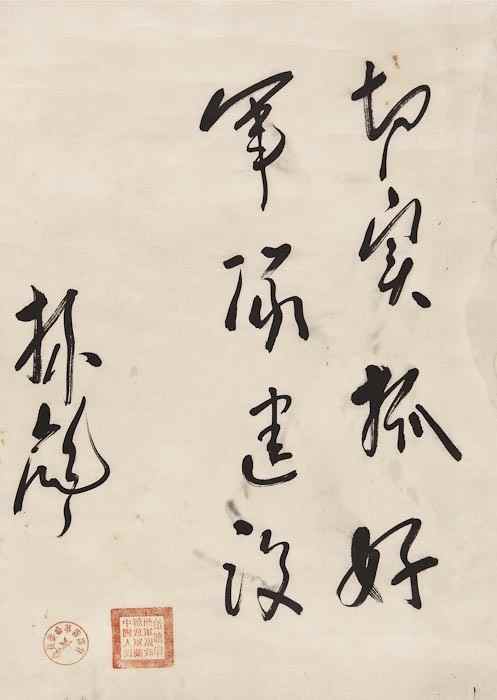 切实抓好
軍隊建设
林彪